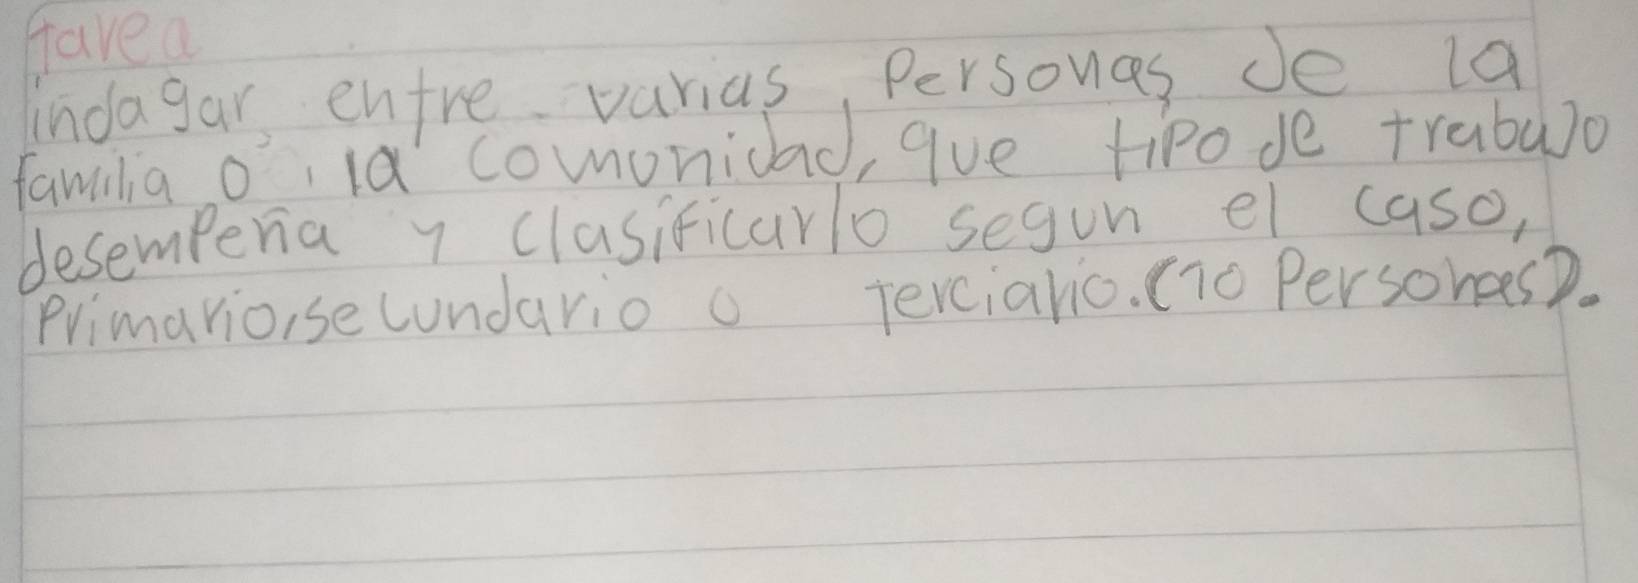 tarea
indagar entre varias Personas de la
familia o la comonidad, que tipo de trabajo
desempeña y clasificarlo segun el caso,
Primario, secundario o Terciario. (10 Personas).